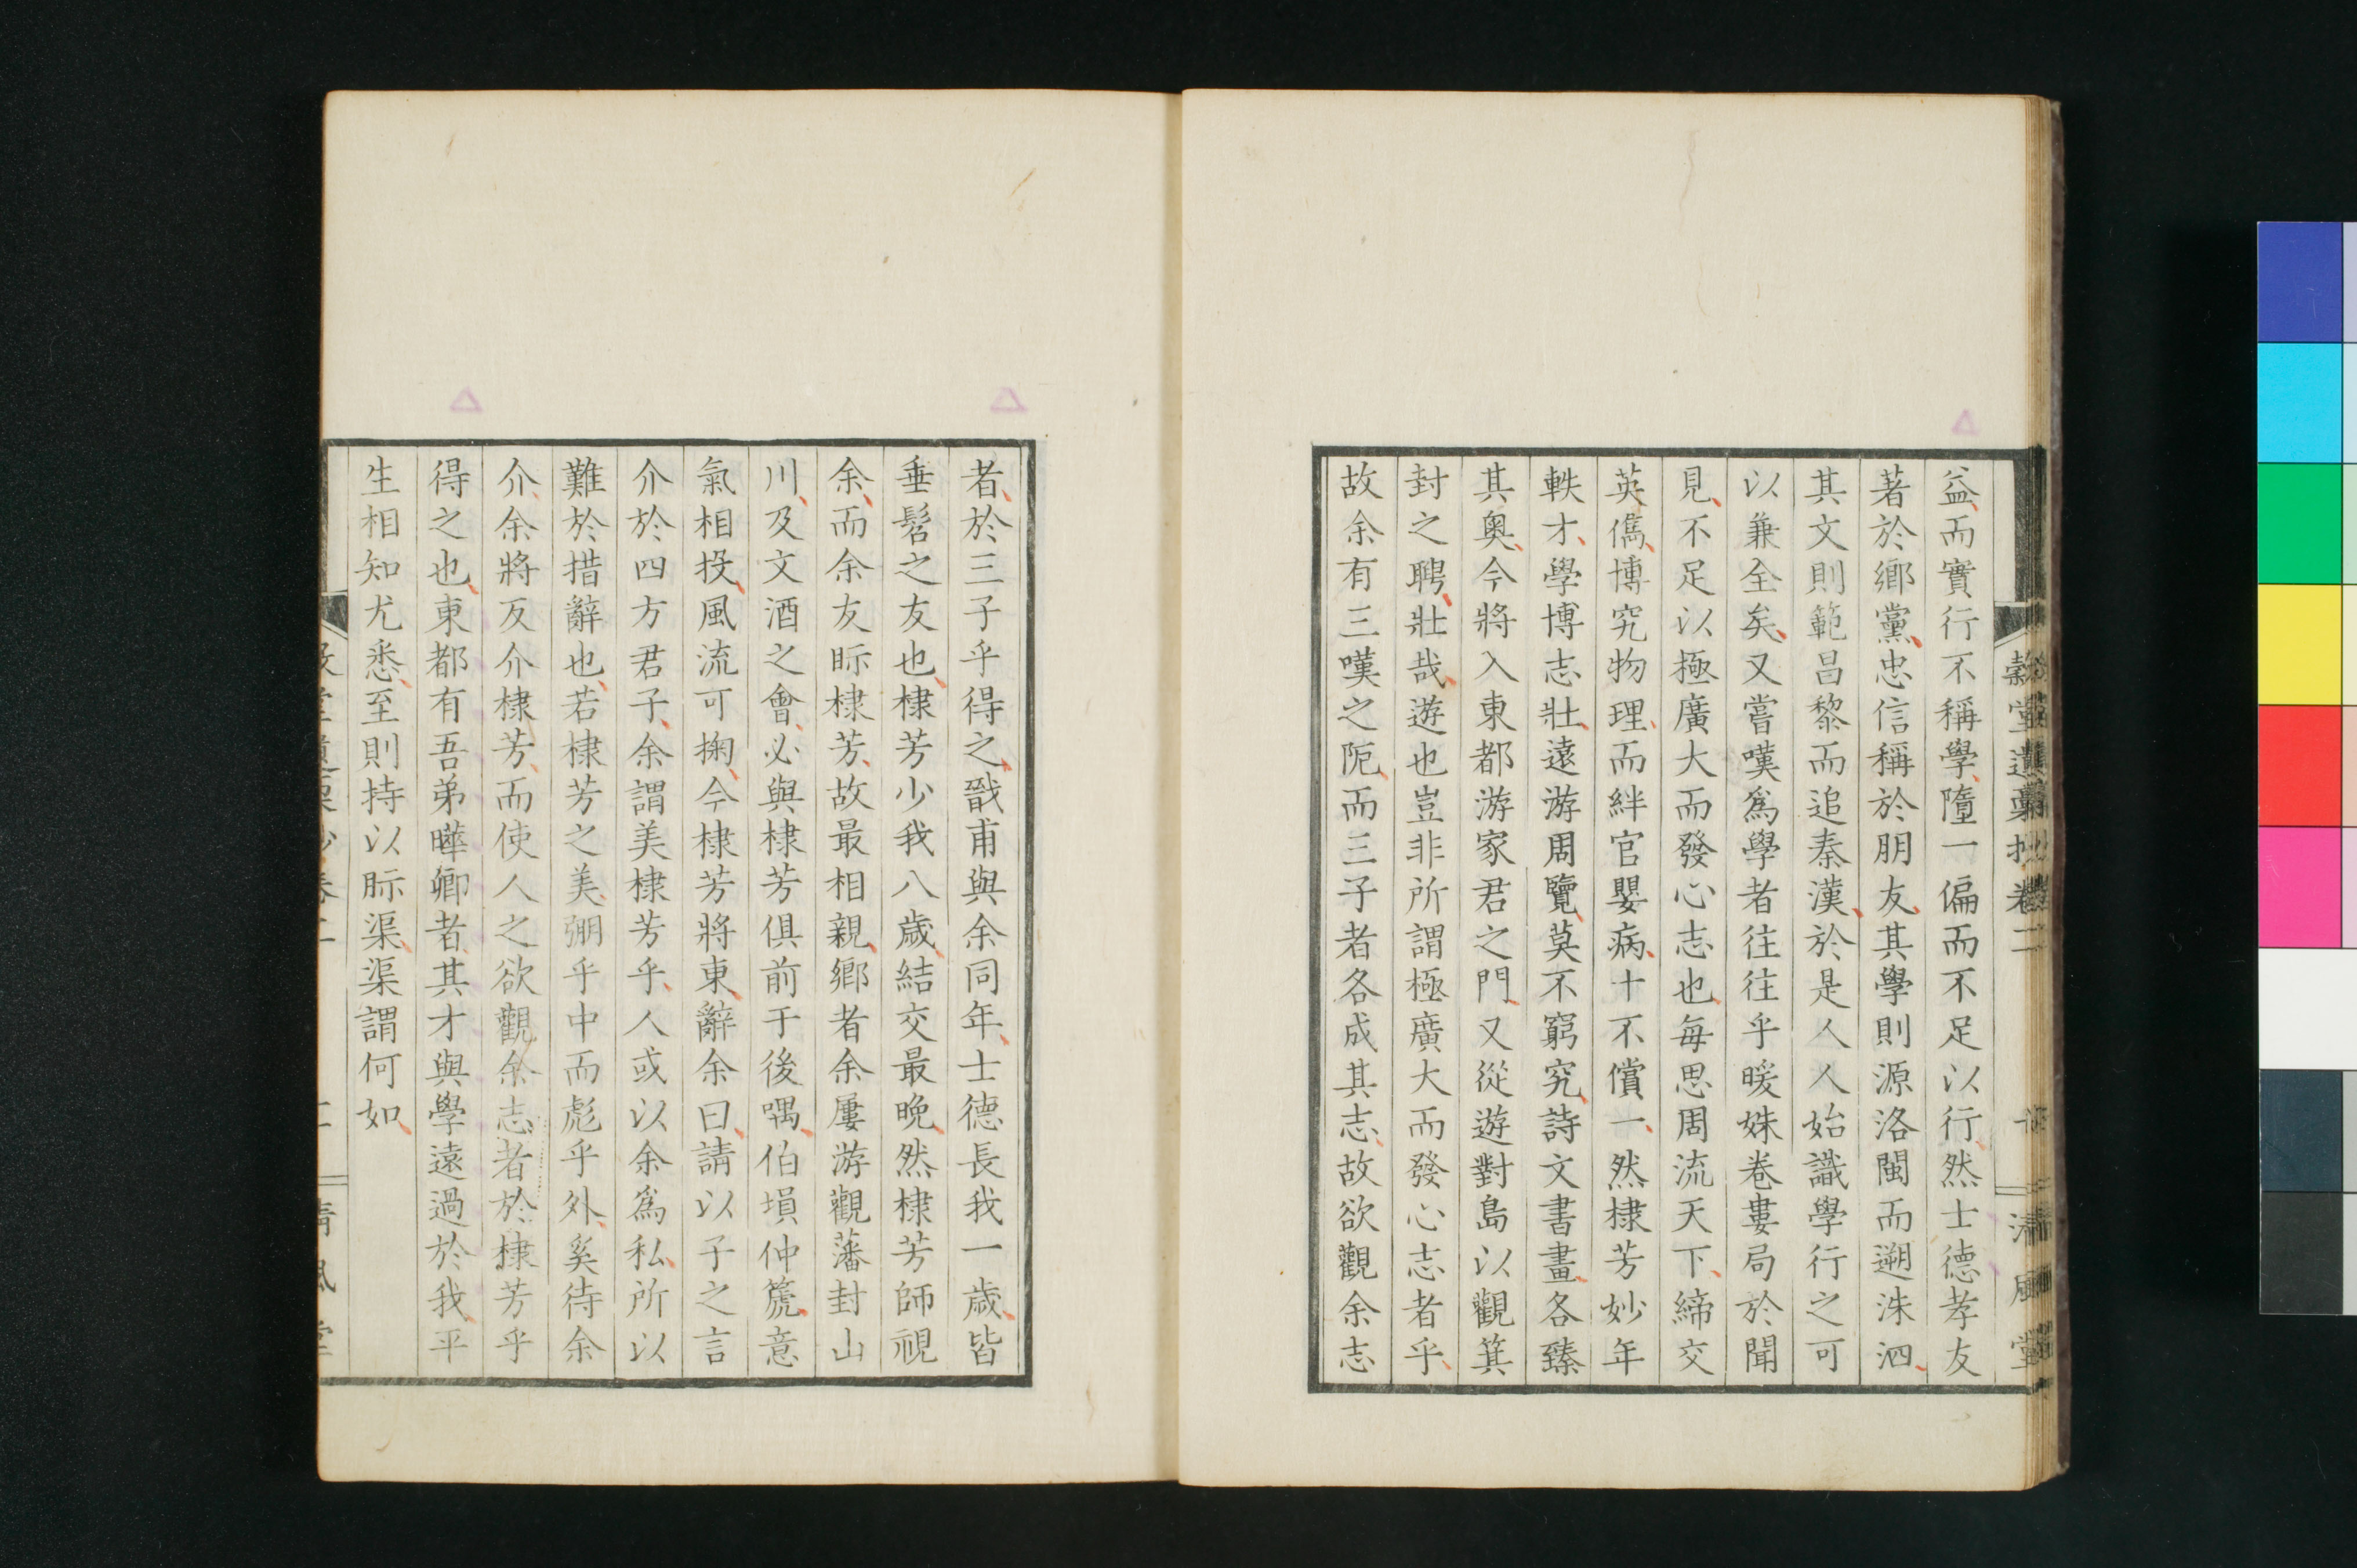 益而實行不稱學墮一偏而不足以行然士德孝友
著於鄉黨忠信稱於朋友其學則源洛閩而遡洙泗
其文則範昌黎而追秦漢於是人人始識學行之可
以兼全矣又嘗嘆爲學者往往乎暖姝卷婁局於聞
見不足以極廣大而發心志也每思周流天下締交
英儁博究物理而絆官嬰病十不償一然棣芳妙年
軼才學博志壯遠游周覽莫不窮究詩文書畫各臻
其奥今將入東都游家君之門又從遊對島以觀箕
封之聘壯哉遊也豈非所謂極廣大而發心志者乎
故余有三嘆之阨而三子者各成其志故欲觀余志
者於三子乎得之戩甫與余同年士德長我一歲皆
垂髫之友也棣芳少我八歲結交最晩然棣芳師視
余而余友眎棣芳故最相親鄉者余屢游觀藩封山
川及文酒之會必與棣芳俱前于後喁伯塤仲箎意
氣相投風流可掬今棣芳將東辭余曰請以子之言
介於四方君子余謂美棣芳乎人或以余爲私所以
難於措辭也若棣芳之美弸乎中而彪乎外奚待余
介余將反介棣芳而使人之欲觀余志者於棣芳乎
得之也東都有吾弟曄卿者其才與學遠過於我平
生相知尤悉至則持以眎渠渠謂何如
穀堂遺稾抄卷二
清風堂